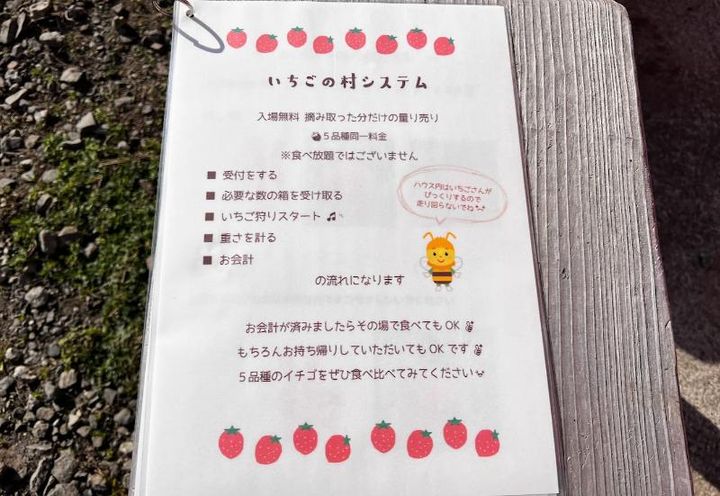 いちごの村システム
入場無料 摘み取った分だけの量り売り
5品種同一料金
※食べ放題ではございません
■ 受付をする
■ 必要な数の箱を受け取る
■ いちご狩りスタート ♫
■ 重さを計る
■ お会計
の流れになります
ハウス内はいちごさんが
びっくりするので
走り回らないでね
お会計が済みましたらその場で食べてもOK
もちろんお持ち帰りしていただいてもOKです
5品種のイチゴをぜひ食べ比べてみてください